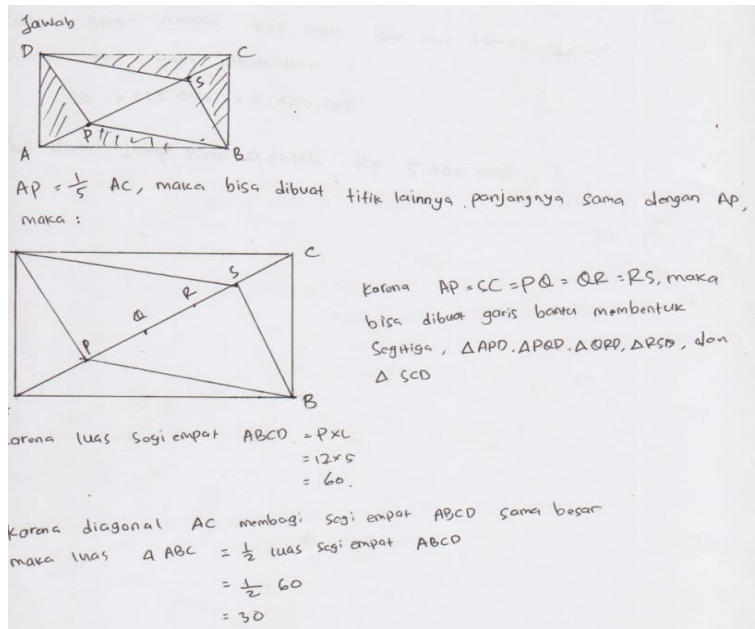 Jawab
D C
S
P
A B
AP = 1/5 AC, maka bisa dibuat titik lainnya panjangnya sama dengan AP,
maka :
C
S
R
Q
P
B
Karena AP = SC = PQ = QR = RS, maka
bisa dibuat garis bantu membentuk
Segitiga, △APD. △PQD. △QRD, △RSD, dan
△ SCD
arena luas Segi empat ABCD = P×L
= 12×5
= 60.
Karena diagonal AC membagi segi empat ABCD sama besar
maka luas △ ABC = 1/2 luas segi empat ABCD
= 1/2 · 60
= 30